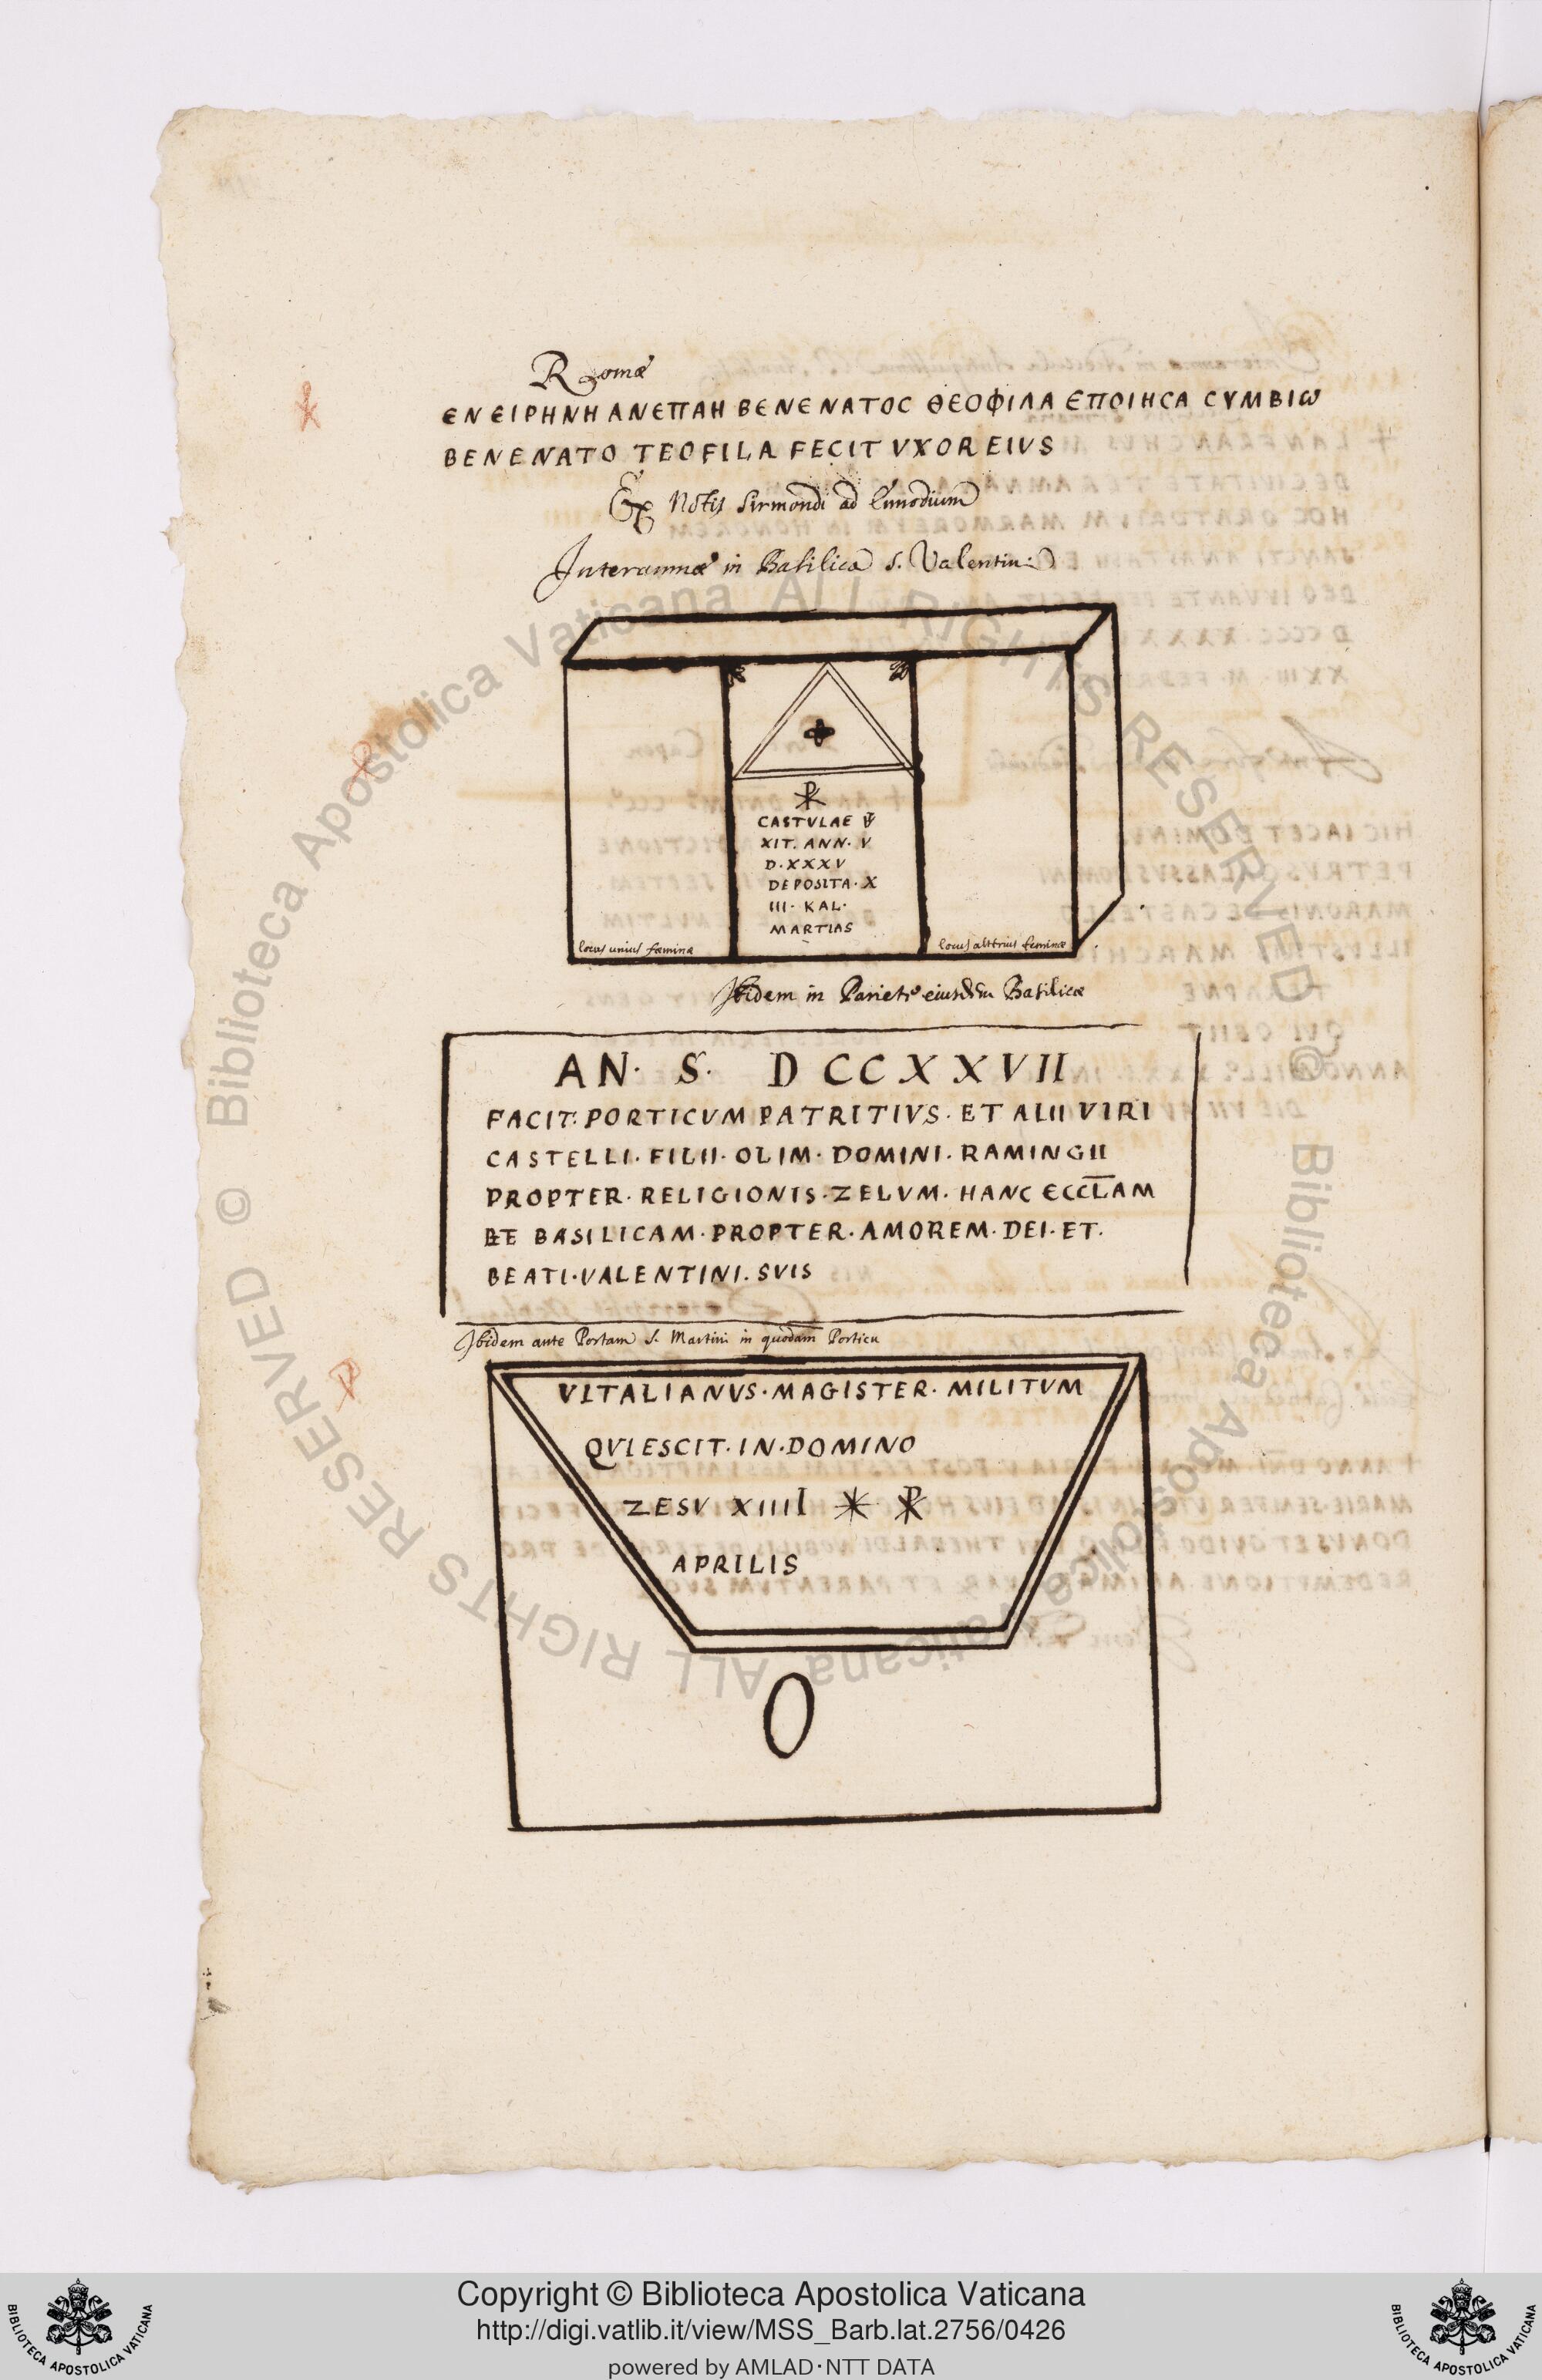 Romæ
ЄΝ ЄΙΡΗΝΗ ΑΝЄΠΑΗ ΒЄΝЄΝΑΤΟС ΘЄΟΦΙΛΑ ЄΠΟΙΗСΑ СΥΜΒΙω
BENENATO TEOFILA FECIT VXOR EIVS
Ex Notis Sirmondi ad Ennodium
Interamnæ in Basilica S. Valentini
☧
CASTVLAE VI
XIT. ANN. V
D. XXXV
DEPOSITA. X
III. KAL.
MARTIAS
locus unius fœminæ
locus alterius feminæ
Ibidem in Pariete eiusdem Basilicæ
AN. S. DCCXXVII
FACIT: PORTICVM PATRITIVS. ET ALII VIRI
CASTELLI. FILII. OLIM. DOMINI. RAMINGII
PROPTER. RELIGIONIS. ZELVM. HANC ECCLAM
ET BASILICAM. PROPTER. AMOREM. DEI. ET.
BEATI. VALENTINI. SVIS
Ibidem ante Portam S. Martini in quodam Porticu
VITALIANVS. MAGISTER. MILITVM
QVIESCIT. IN. DOMINO
ZESV XIIII ✳ ☧
APRILIS
O
© Biblioteca Apostolica Vaticana ALL RIGHTS RESERVED
© Biblioteca Apostolica Vaticana ALL RIGHTS RESERVED
Copyright © Biblioteca Apostolica Vaticana
http://digi.vatlib.it/view/MSS_Barb.lat.2756/0426
powered by AMLAD·NTT DATA
BIBLIOTECA APOSTOLICA VATICANA
BIBLIOTECA APOSTOLICA VATICANA